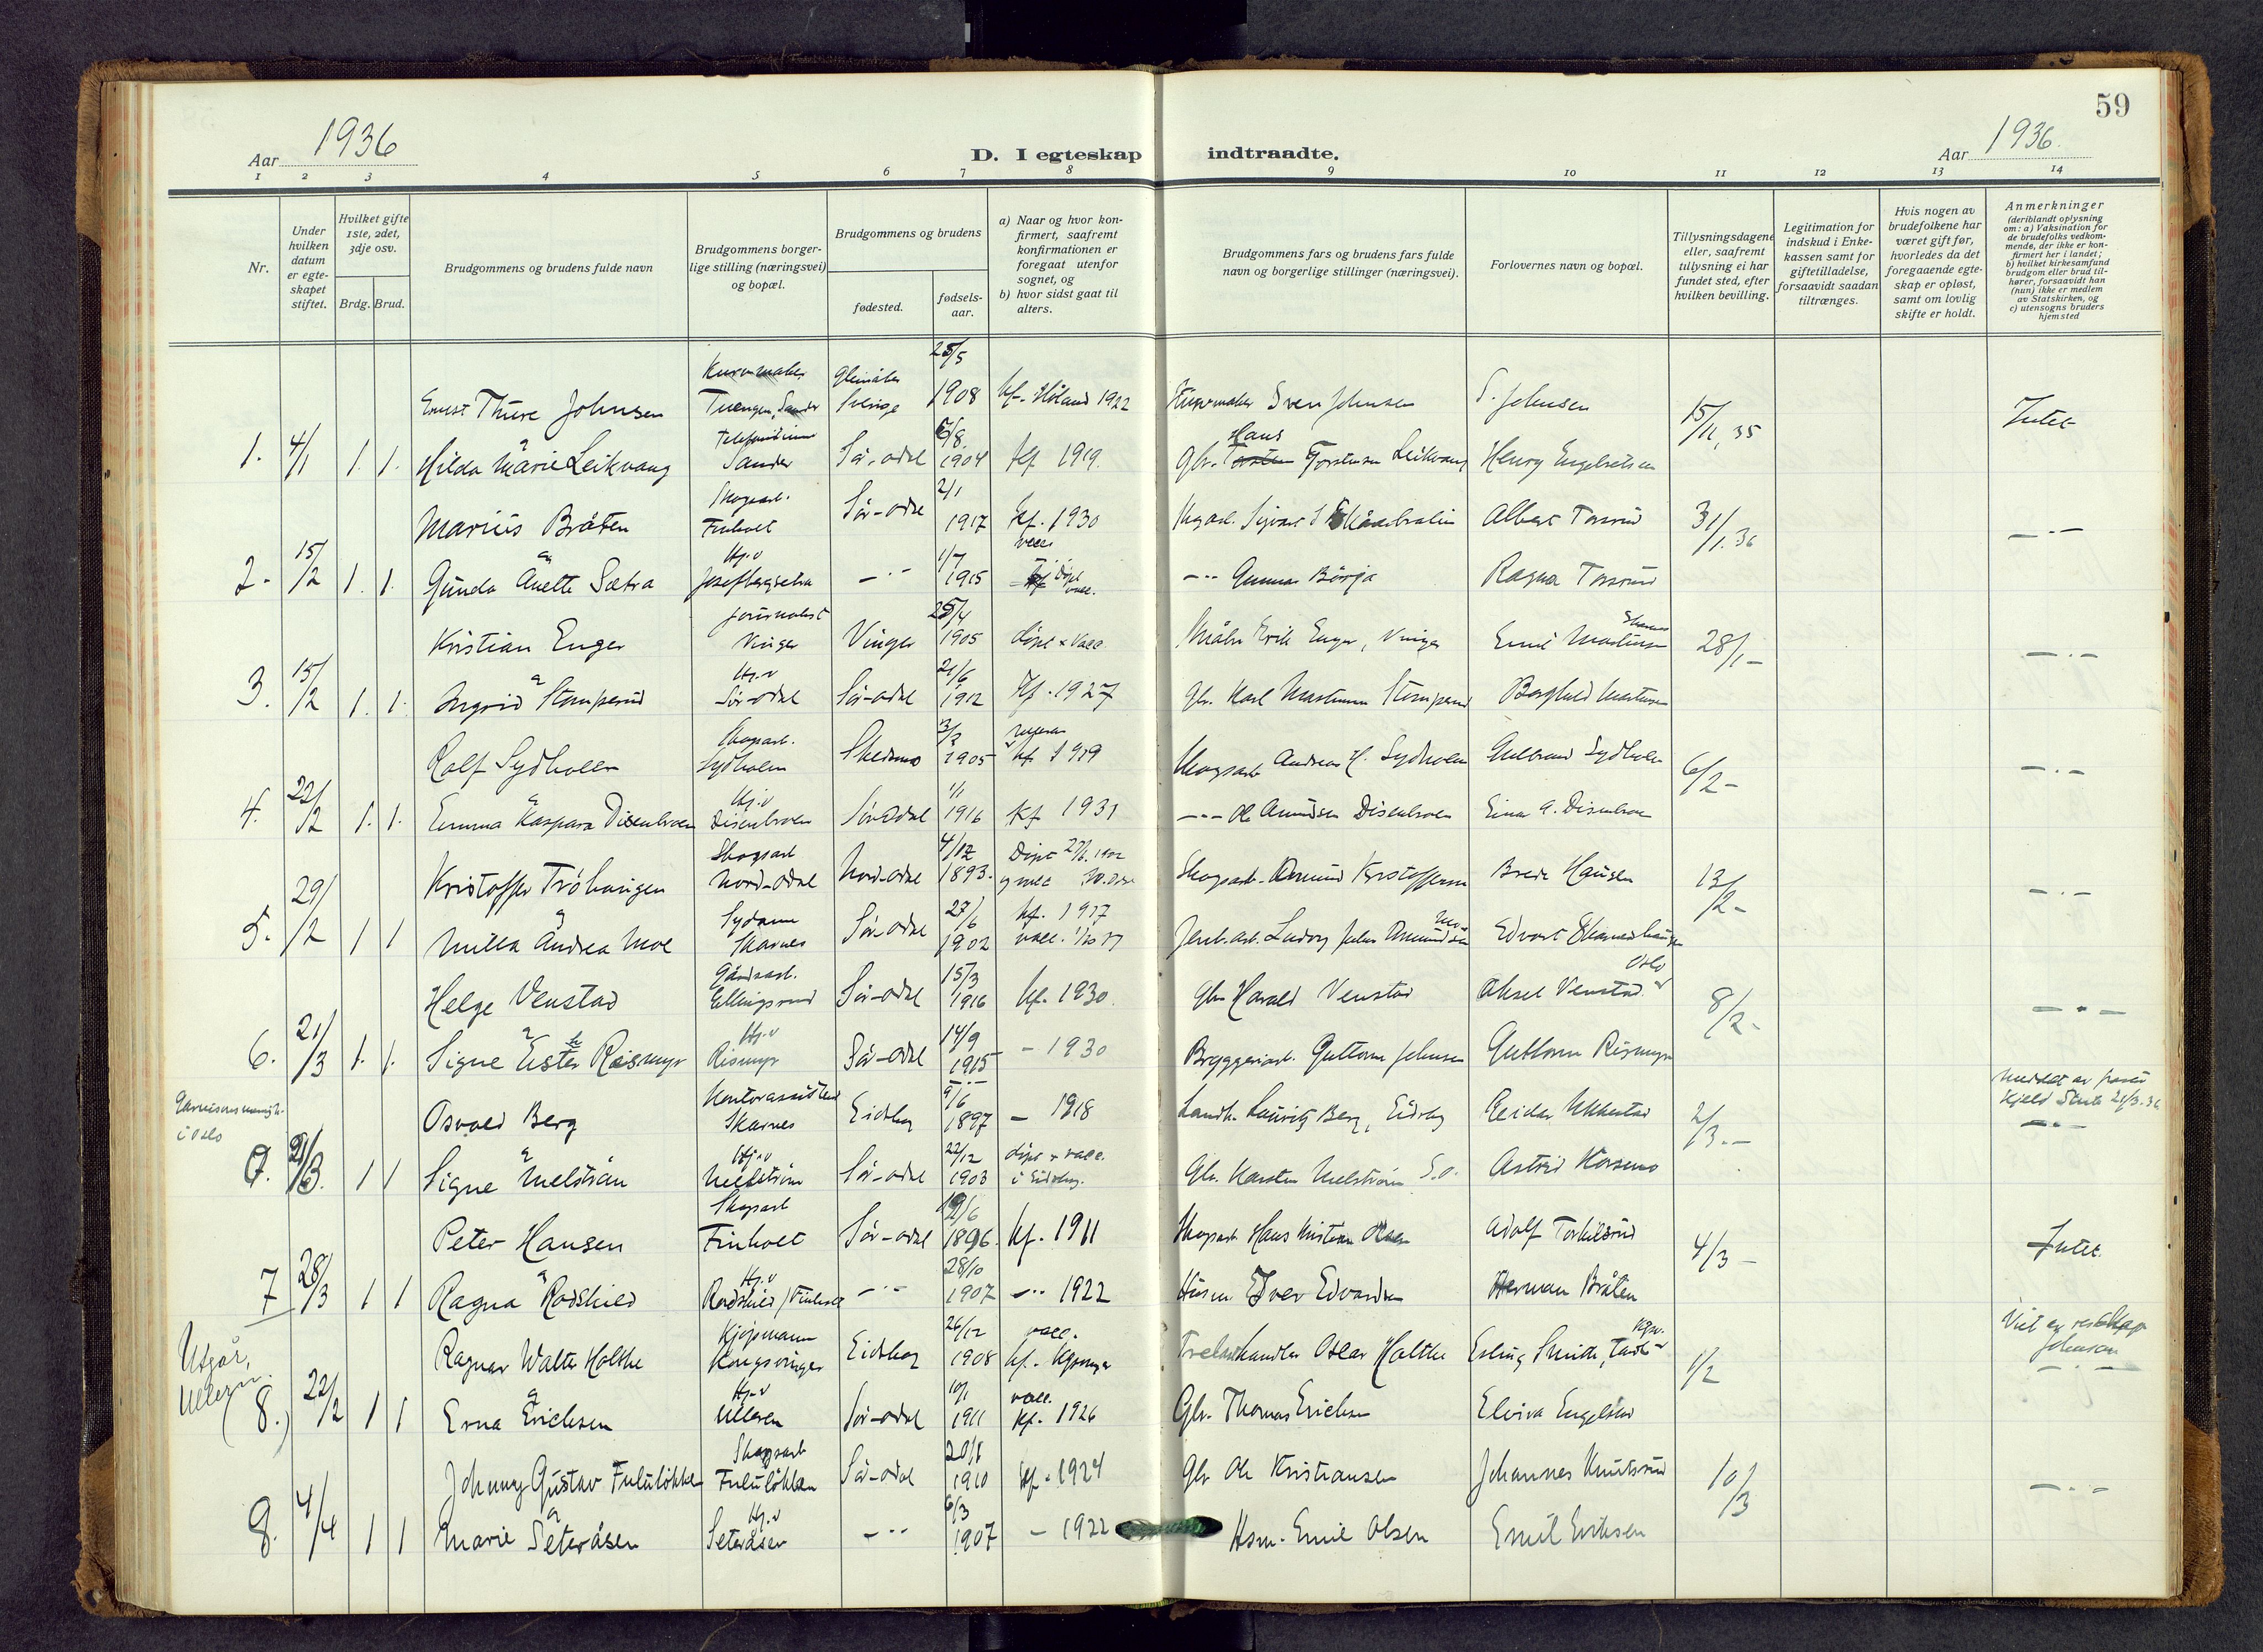 59
Aar 1936
D. I egteskap indtraadte.
Aar 1936.
1 2 3 4 5 6 7 8 9 10 11 12 13 14
Nr.
Under hvilken datum er egteskapet stiftet.
Hvilket gifte 1ste, 2det, 3dje osv.
Brdg. Brud.
Brudgommens og brudens fulde navn
Brudgommens borgerlige stilling (næringsvei) og bopæl.
Brudgommens og brudens
fødested.
fødselsaar.
a) Naar og hvor konfirmert, saafremt konfirmationen er foregaat utenfor sognet, og
b) hvor sidst gaat til alters.
Brudgommens fars og brudens fars fulde navn og borgerlige stillinger (næringsvei).
Forlovernes navn og bopæl.
Tillysningsdagene eller, saafremt tillysning ei har fundet sted, efter hvilken bevilling.
Legitimation for indskud i Enkekassen samt for giftetilladelse, forsaavidt saadan tiltrænges.
Hvis nogen av brudefolkene har været gift før, hvorledes da det foregaaende egteskap er opløst, samt om lovlig skifte er holdt.
Anmerkninger
(deriblandt oplysning om: a) Vaksination for de brudefolks vedkommende, der ikke er konfirmert her i landet; b) hvilket kirkesamfund brudgom eller brud tilhører, forsaavidt han (hun) ikke er medlem av Statskirken, og c) utensogns bruders hjemsted
Ernst Thure Johnsen Kurvmaker Tuengen, Sander Sverige 25/5 1908 kf. Høland 1922 Kurvmaker Sven Johnsen S. Johnsen 15/11, 35 Intet
1. 4/1 1. 1. Hilda Marie Leikvang Telefonistinne Sander Sør-Odal 1904 kf 1919. Gbr. Hans Torstensen Leikvang Henry Engebretsen
Marius Bråten Skogsarb. Finholt Sør-Odal 2/1 1917 kf. 1930 Albert Torsrud 31/1. 36 -"-
2. 15/2 1. 1. Gunda Anette Sætra Hj.v -"- 1/7 1915 -"- Gunnar Børja Ragna Torsrud
Kristian Enger Journalist Vinger Vinger 25/4 1905 døpt & vacc. Erik Enger, Vinger Emil Martinsen Skarnes 28/1 - -"-
3. 15/2 1. 1. Ingrid Stomperud Hj.v Sør-Odal Sør-Odal 21/6 1912 kf. 1927 Gbr. Karl Martinsen Stomperud Borghild Martinsen
Rolf Sydholen Skogsarb. Sydholen Skedsmo 1905 kf 1919 Skogsarb. Andreas H. Sydholen Gulbrand Sydholen 6/2 - -"-
4. 22/2 1. 1. Emma Kaspara Disenbroen Hj.v Disenbroen Sør-Odal 1/1 1916 kf 1931 -"- Ole Amundsen Disenbroen Einar A. Disenbroen
Kristoffer Trøhaugen Skogsarb Nord-Odal Nord-Odal 4/12 1893. Skogsarb. Amund Kristoffersen Brede Hansen 13/2 - -"-
5. 29/2 1 1 Milla Andrea Moe Sydame Skarnes Sør-Odal 27/6 1902 kf. 1917 vacc. Jernb.arb. Ludvig Julius Amundsen Moe Edvart Skarneshaugen
Helge Venstad Gårdsarb. Ellingsrud Sør-Odal 15/3 1916 kf. 1930. Gbr Harald Venstad Aksel Venstad Oslo 8/2 - -"-
6. 21/3 1. 1. Signe Ester Rismyr Hj.v Rismyr Sør-Odal 14/9 1915 - 1930 Bryggeriarb. Guttorm Johnsen Guttorm Rismyr
Garnisonsmenigh. i Oslo
Osvald Berg Kontorassistent Skarnes Eidsberg 9/6 1897 - 1918 Lauritz Berg, Eidsberg Reidar Ukkestad 2/3. - Meddelt av prest Kjeld Stub 21/3. 36 -"-
7. 21/3. 1 1 Signe Melstrøm Hj.v Melstrøm Sør-Odal 22/12 1903 døpt & vacc. i Eidsberg. Gbr. Karsten Melstrøm S.O. Astrid Korsmo
Peter Hansen Skogsarb Finholt Sør-Odal 1896. kf. 1911 Skogsarb Hans Kristian Olsen Adolf Torkilsrud 4/3 - Intet.
7 28/3 1 1 Ragna Rodskild Hj.v Rodskild / Finholt -"- 28/10 1907 -"- 1922 Husm. Iver Edvardsen Herman Bråten
Utgår, Ullern.
Ragnar Walter Holthe Kjøpmann Kongsvinger Eidskog 26/12 1908 vacc. kf. Kgsvinger Trelasthandler Oskar Holthe Erling Smith, 1/2 Viet av res kap Johnson -"-
(8.) 22/2 1 1 Erna Erichsen Hj.v Ulleren Sør-Odal 10/1 1911 vacc. kf. 1926 Gbr. Thomas Erichsen Elvira Engelstad
Johnny Gustav Fululøkken Skogsarb Fululøkken Sør-Odal 20/8 1910 kf. 1924 Gbr Ole Kristiansen Johannes Knutsrud 10/3 -"-
8. 4/4 1 1 Marie Seteråsen Hj.v Seteråsen -"- 6/3 1907 - 1922 Hsm. Emil Olsen Emil Eriksen